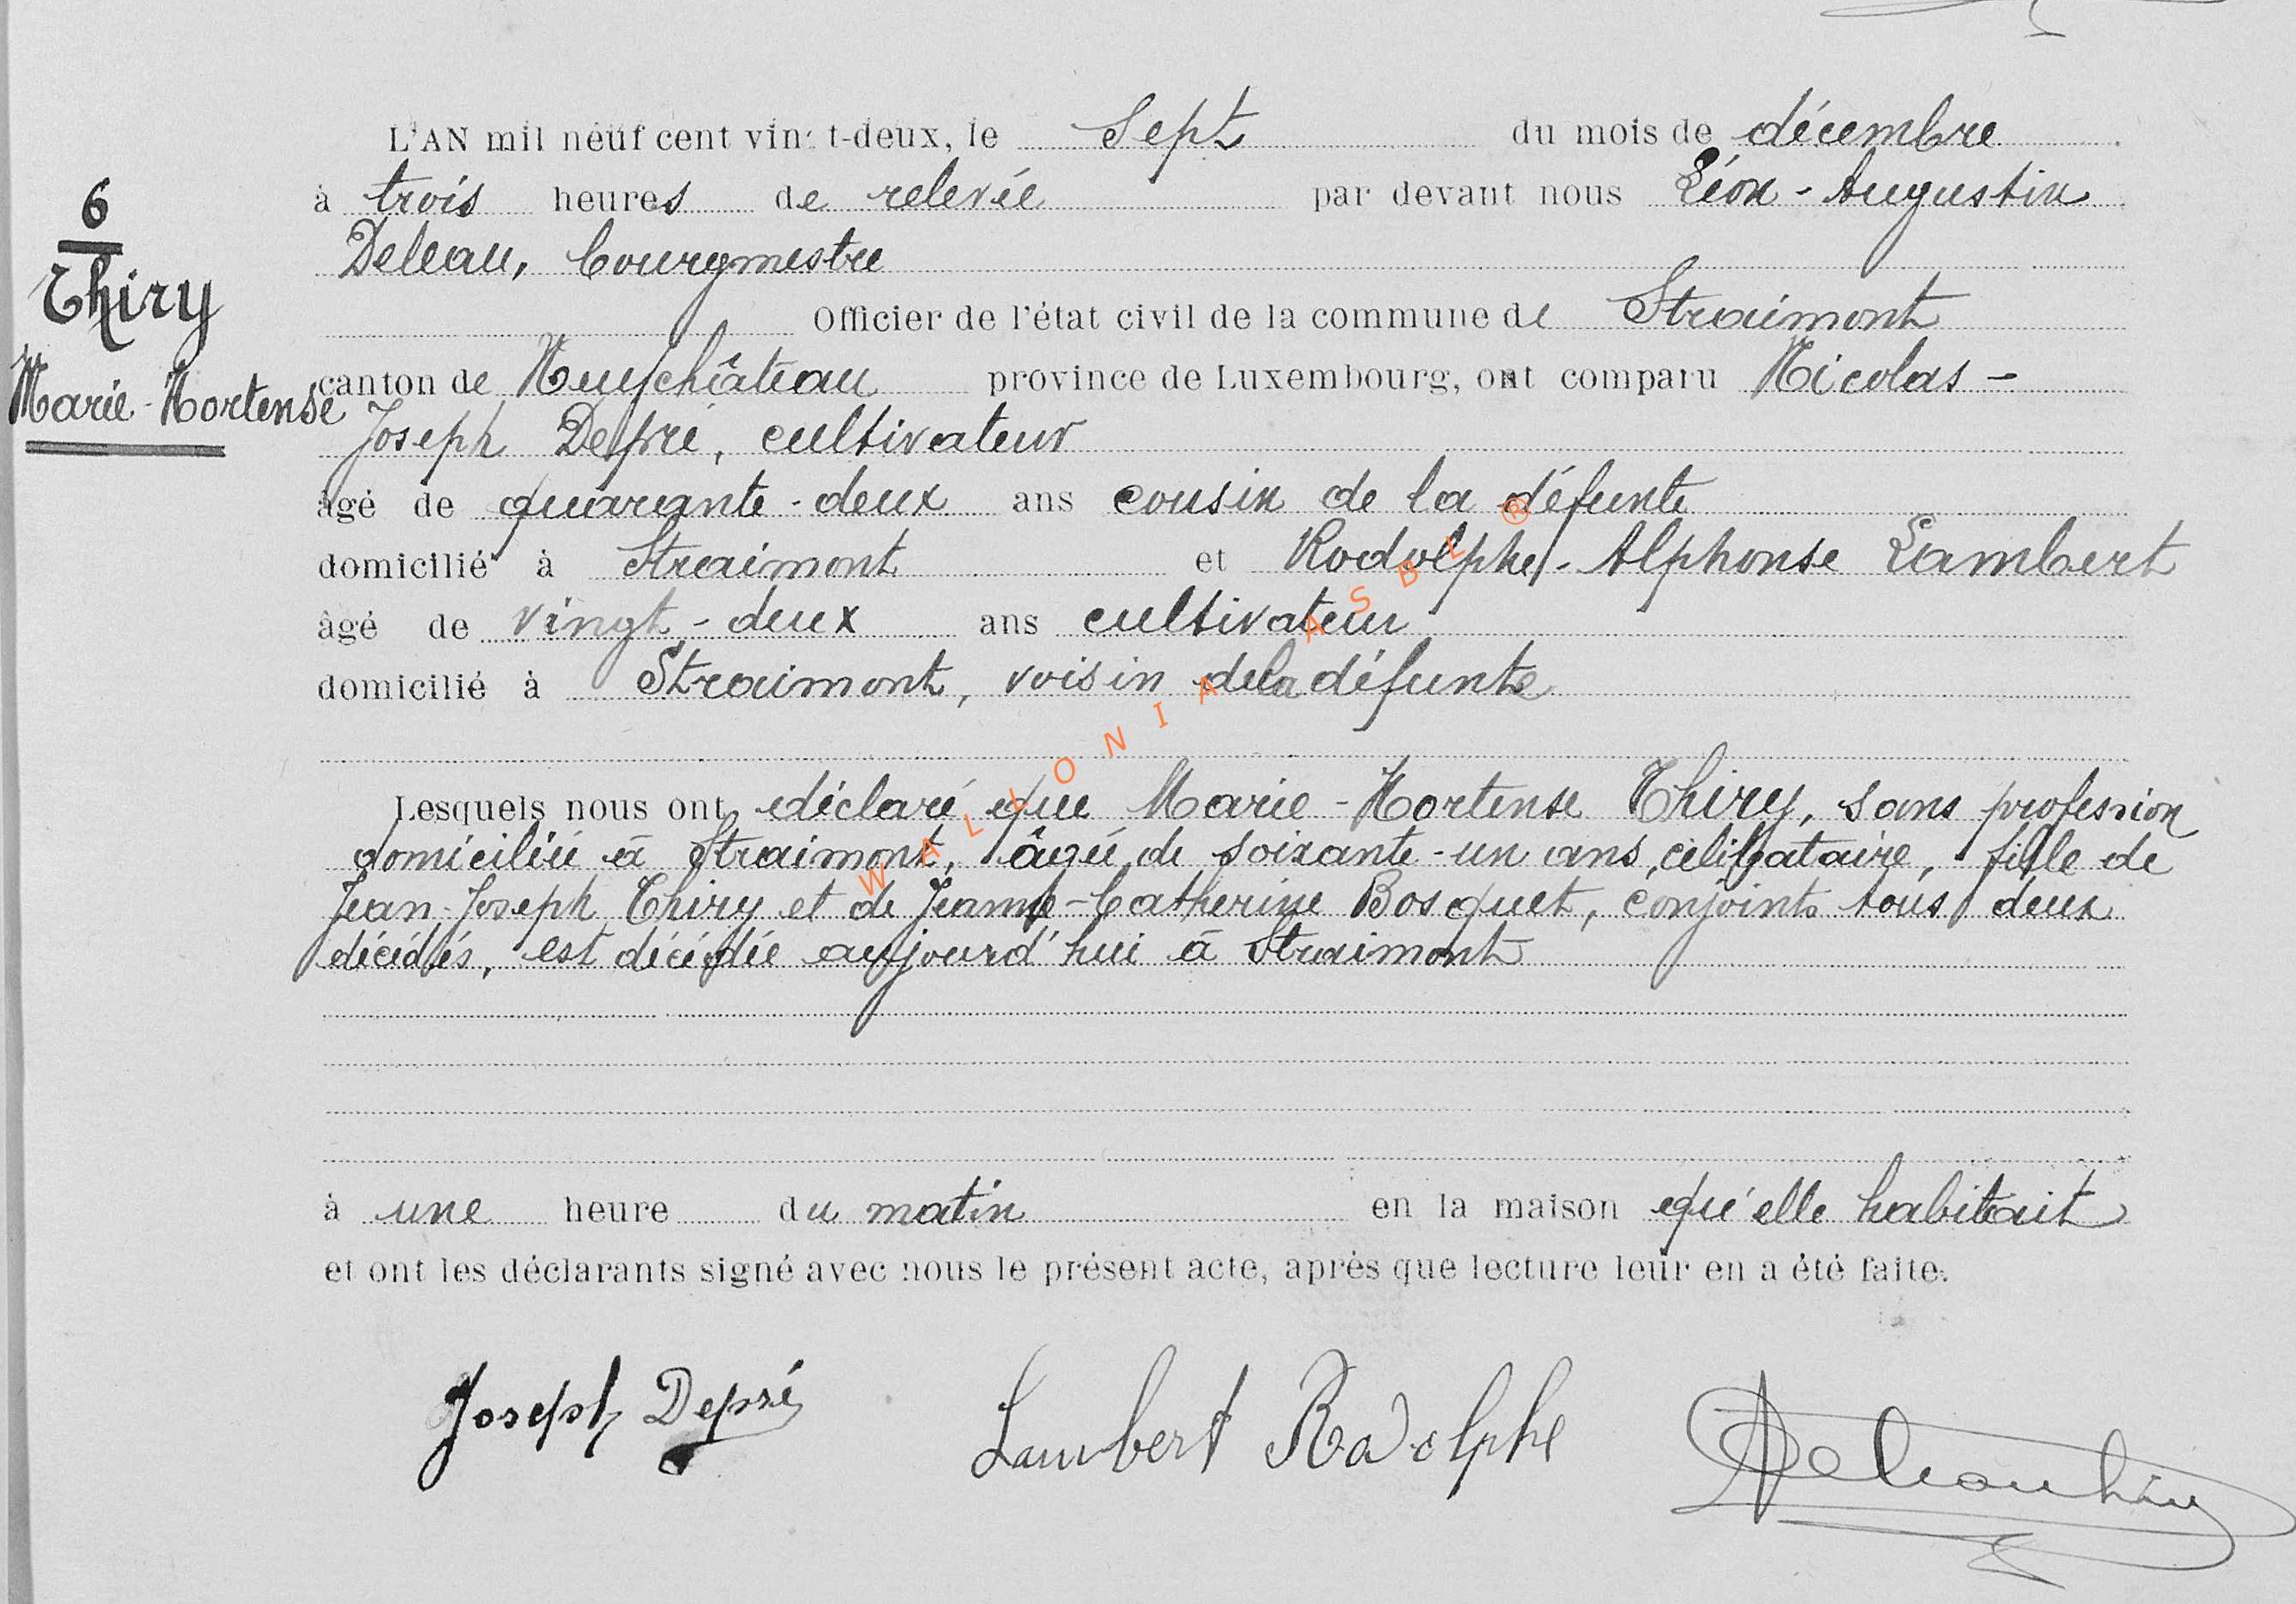 6
Thiry
Marie-Hortense
L'AN mil neuf cent vingt-deux, le Sept du mois de décembre
à trois heures de relevée par devant nous Léon-Augustin
Deleau, bourgmestre
Officier de l'état civil de la commune de Straimont
canton de Neufchâteau province de Luxembourg, ont comparu Nicolas-
Joseph Depré, cultivateur
âgé de quarante-deux ans cousin de la défunte
domicilié à Straimont et Rodolphe-Alphonse Lambert
âgé de vingt-deux ans cultivateur
domicilié à Straimont, voisin de la défunte
Lesquels nous ont déclaré que Marie-Hortense Thiry, sans profession
domiciliée à Straimont, âgée de soixante-un ans, célibataire, fille de
Jean-Joseph Thiry et de Jeanne-Catherine Bosquet, conjoints tous deux
décédés, est décédée aujourd'hui à Straimont
à une heure du matin en la maison qu'elle habitait
et ont les déclarants signé avec nous le présent acte, après que lecture leur en a été faite.
Joseph Depré Lambert Rodolphe
WALLONIA ASBL ®